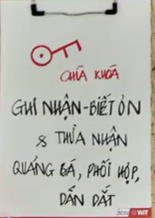 CHÌA KHOÁ
GHI NHẬN - BIẾT ƠN
& THỪA NHẬN
QUẢNG BÁ, PHỐI HỢP,
DẪN DẮT